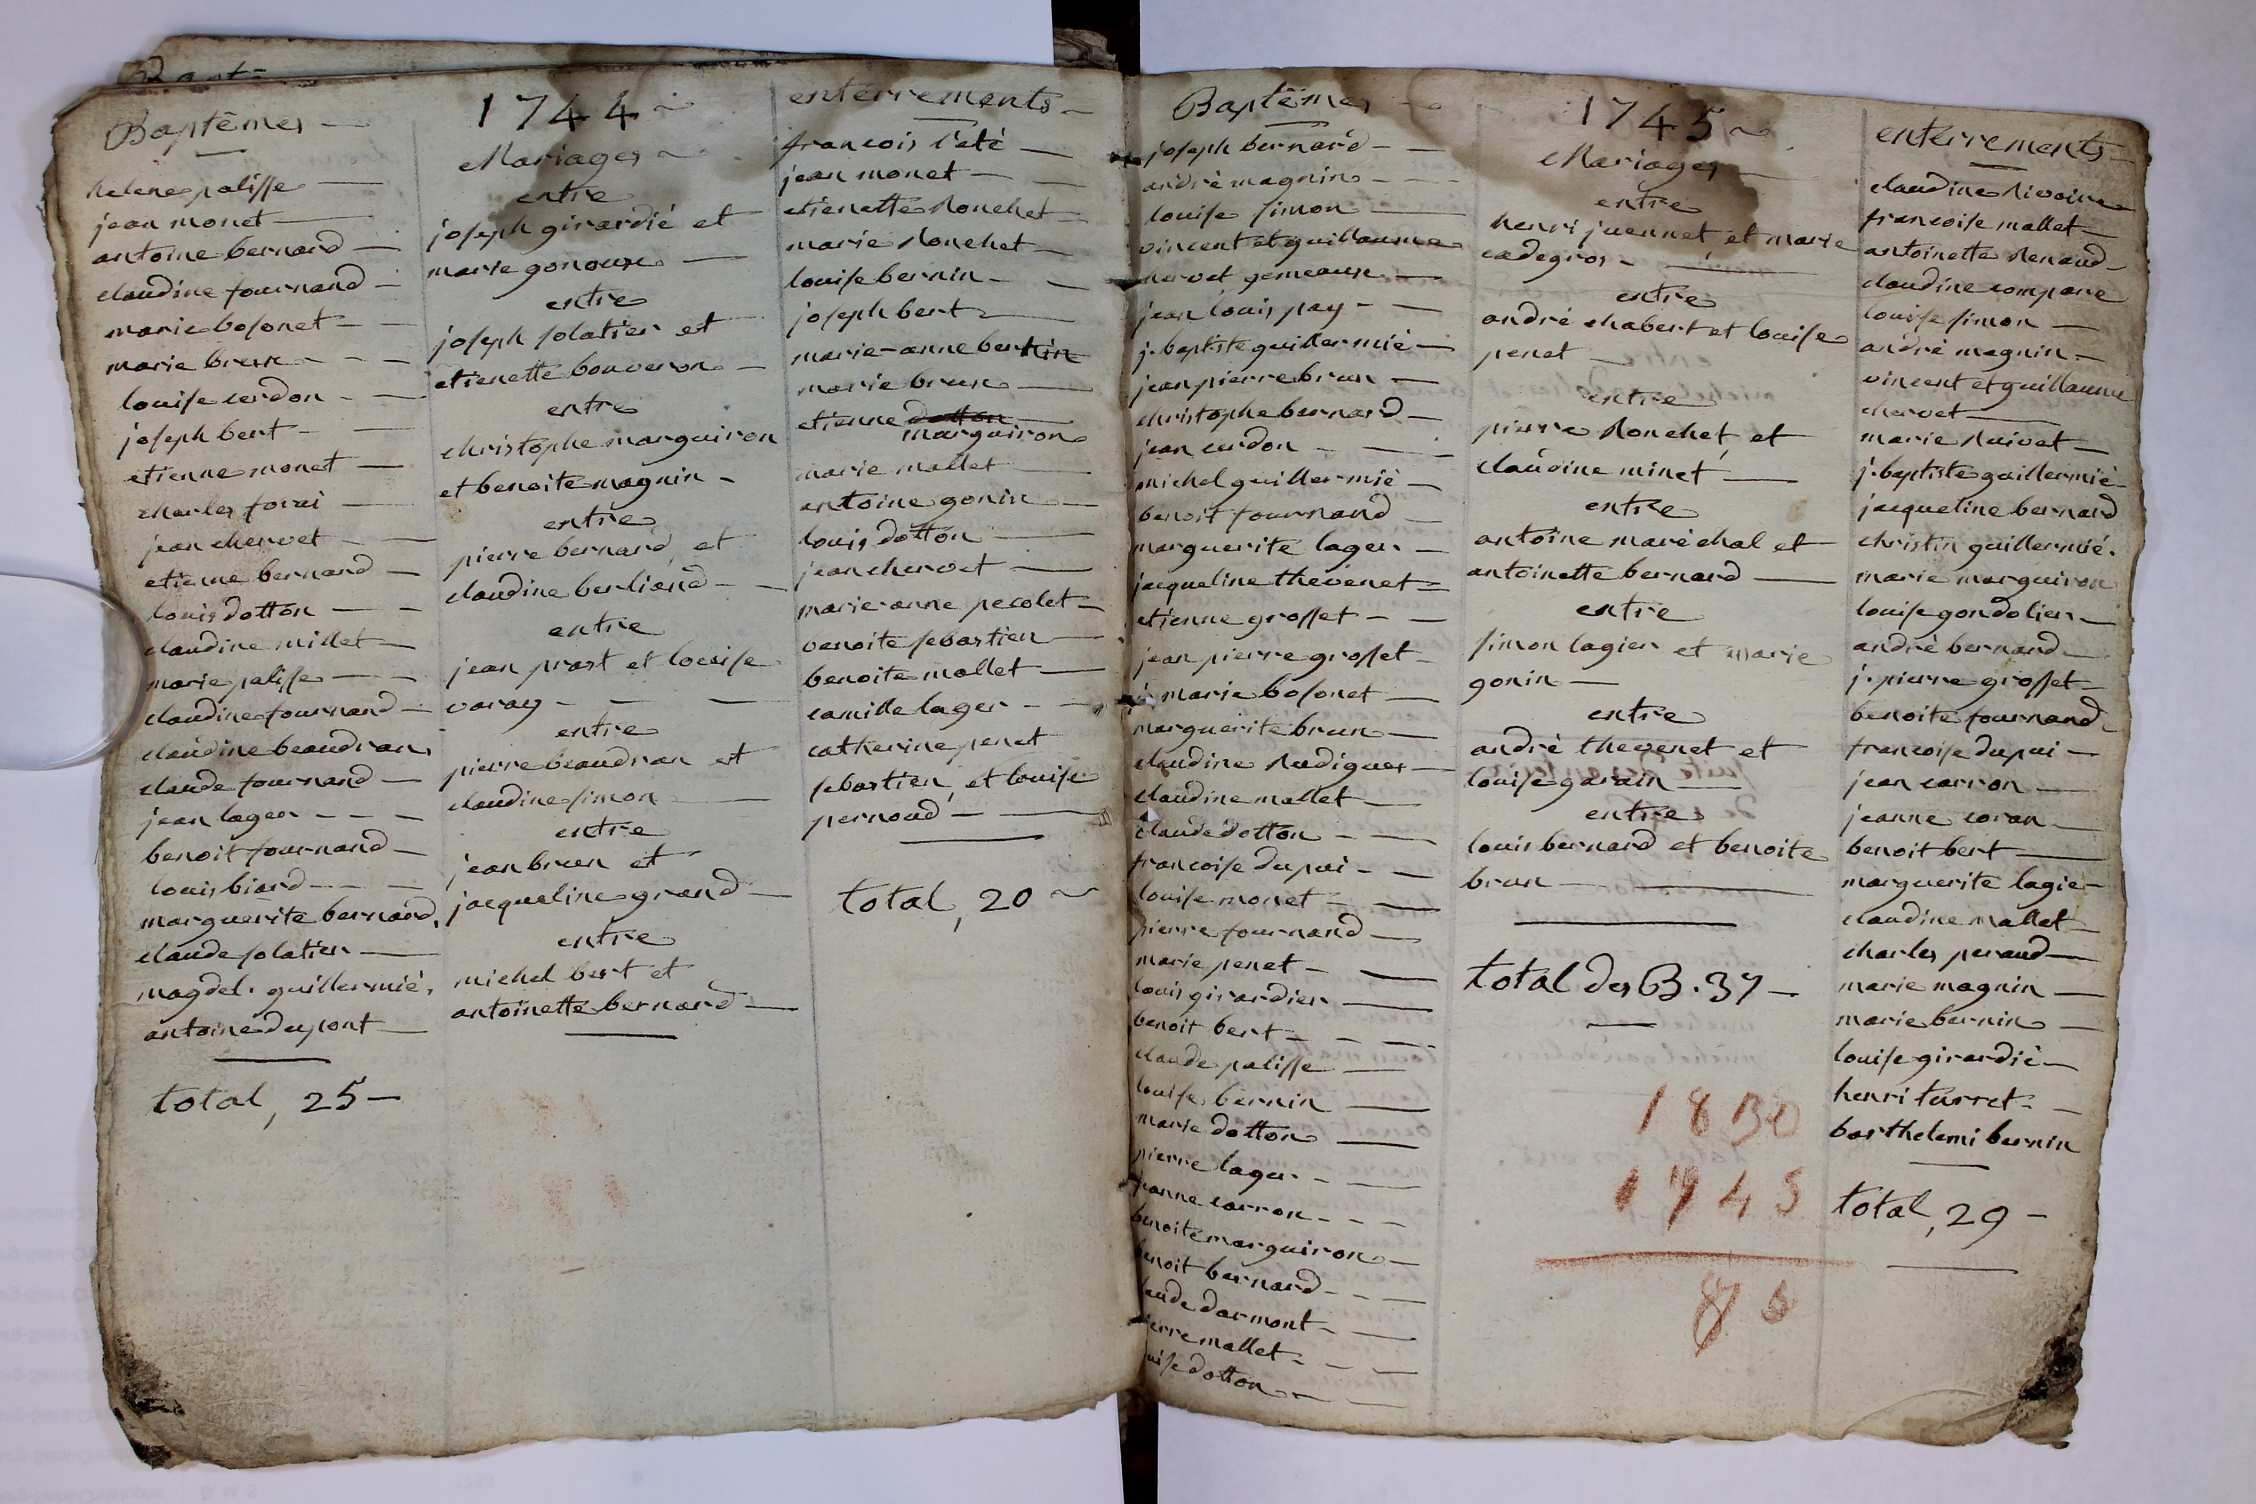 Bapt
Baptêmes
helene palisse
jean monet
antoine bernard
claudine fournand
marie bosonet
marie brun
louise cerdon
joseph bert
etienne monet
charles
jean chervet
etienne bernard
louis dotton
claudine millet
marie palisse
claudine fournand
claudine beaudran
claude fournand
jean lager
benoit fournand
louis biard
marguerite bernard
claude solatier
magdel. guillermié
antoine dupont
total, 25
1744
Mariages
entre
joseph girardié et
marie gonoux
entre
joseph solatier et
etienette bouveron
entre
christophe marguiron
et benoite magnin
entre
pierre bernard et
claudine berliand
entre
jean prost et louise
varay
entre
pierre beaudran et
claudine simon
entre
jean brun et
jacqueline grand
entre
michel bert et
antoinette bernard
enterrements
francois l'été
jean monet
etienette ronchet
marie ronchet
louise bernin
joseph bert
marie-anne bernin
marie brun
etienne dotton
marguiron
marie mallet
antoine gonin
louis dotton
jean chervet
marie anne pecolet
benoite sebastien
benoite mallet
camille lager
catherine penet
sebastien, et louise
pernoud
total, 20
Baptêmes
joseph bernard
andré magnin
louise simon
vincent et guillaume
chervet gemeaux
jean louis pay
j. baptiste guillermié
jean pierre brun
christophe bernard
jean cerdon
michel guillermié
benoit fournand
marguerite lager
jacqueline thevenet
etienne grosset
jean pierre grosset
j. marie bosonet
marguerite brun
claudine rudiguer
claudine mallet
claude dotton
francoise dupui
louise monet
pierre fournand
marie penet
louis girardier
benoit bert
claude palisse
louise bernin
marie dotton
pierre lager
jeanne carron
benoite marguiron
benoit bernard
claude darmont
pierre mallet
louise dotton
1745
Mariages
entre
henri juennet et marie
cadegros
entre
andré chabert et louise
penet
entre
pierre ronchet, et
claudine minet
entre
antoine maréchal et
antoinette bernard
entre
simon lagier et marie
gonin
entre
andré thevenet et
louise garain
entre
louis bernard et benoite
brun
total des B. 37
1830
1745
85
enterrements
claudine rivoire
francoise mallet
antoinette renaud
claudine compare
louise simon
andré magnin
vincent et guillaume
chervet
marie ruivet
j. baptiste guillermié
jacqueline bernard
christin guillermié
marie marguiron
louise gondolier
andré bernard
j. pierre grosset
benoite fournand
francoise dupui
jean carron
jeanne coran
benoit bert
marguerite lagie
claudine mallet
charles peraud
marie magnin
marie bernin
louise girardié
henri turret
barthelemi bernin
total, 29